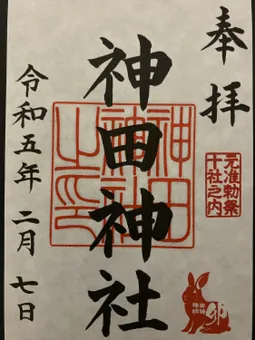 奉拝
元准勅祭
十社之内
神田神社
神田
神社
之印
令和五年二月七日